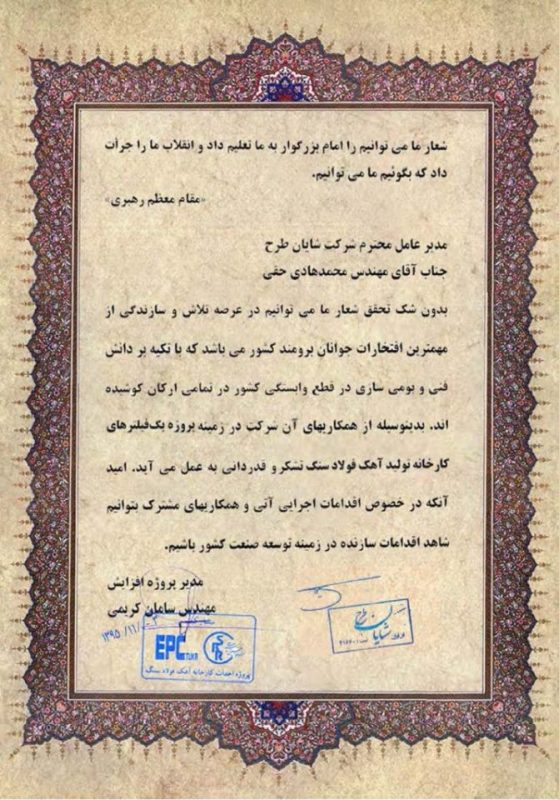 شعار ما می توانیم را امام بزرگوار به ما تعلیم داد و انقلاب ما را جرأت
داد که بگوئیم ما می توانیم.
«مقام معظم رهبری»
مدیر عامل محترم شرکت شایان طرح
جناب آقای مهندس محمدهادی حقی
بدون شک تحقق شعار ما می توانیم در عرصه تلاش و سازندگی از
مهمترین افتخارات جوانان برومند کشور می باشد که با تکیه بر دانش
فنی و بومی سازی در قطع وابستگی کشور در تمامی ارکان کوشیده
اند. بدینوسیله از همکاریهای آن شرکت در زمینه پروژه بگ‌فیلترهای
کارخانه تولید آهک فولاد سنگ تشکر و قدردانی به عمل می آید. امید
آنکه در خصوص اقدامات اجرایی آتی و همکاریهای مشترک بتوانیم
شاهد اقدامات سازنده در زمینه توسعه صنعت کشور باشیم.
مدیر پروژه افزایش
مهندس سامان کریمی
شایان طرح
EPC
پروژه احداث کارخانه آهک فولاد سنگ